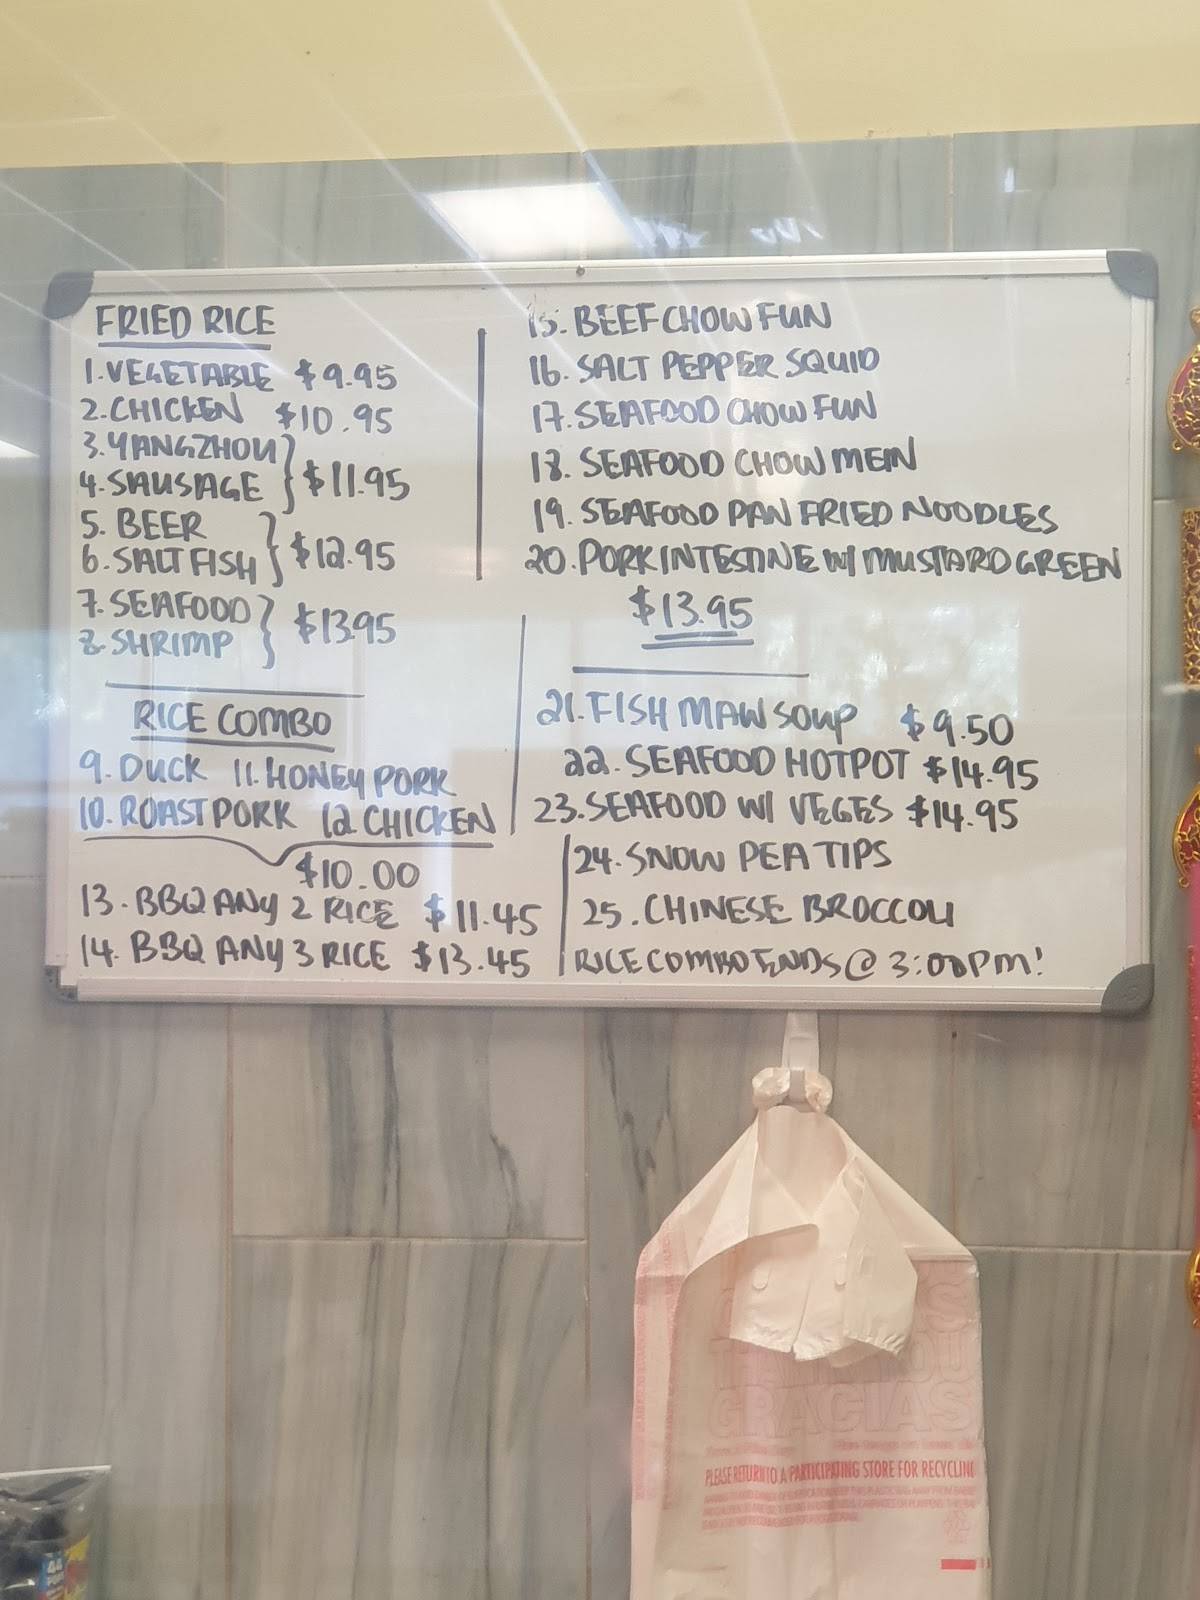 FRIED RICE
1. VEGETABLE $9.95
2. CHICKEN $10.95
3. YANGZHOU
4. SAUSAGE
$11.95
5. BEER
6. SALT FISH
$12.95
7. SEAFOOD
8. SHRIMP
$13.95
RICE COMBO
9. DUCK 11. HONEY PORK
10. ROAST PORK 12 CHICKEN
$10.00
13. BBQ ANY 2 RICE $11.45
14. BBQ ANY 3 RICE $13.45
15. BEEF CHOW FUN
16. SALT PEPPER SQUID
17. SEAFOOD CHOW FUN
18. SEAFOOD CHOW MEIN
19. SEAFOOD PAN FRIED NOODLES
20. PORK INTESTINE W/ MUSTARD GREEN
$13.95
21. FISH MAW SOUP $9.50
22. SEAFOOD HOTPOT $14.95
23. SEAFOOD W/ VEGES $14.95
24. SNOW PEA TIPS
25. CHINESE BROCCOLI
RICE COMBO ENDS @ 3:00PM!
GRACIAS
PLEASE RETURN TO A PARTICIPATING STORE FOR RECYCLING